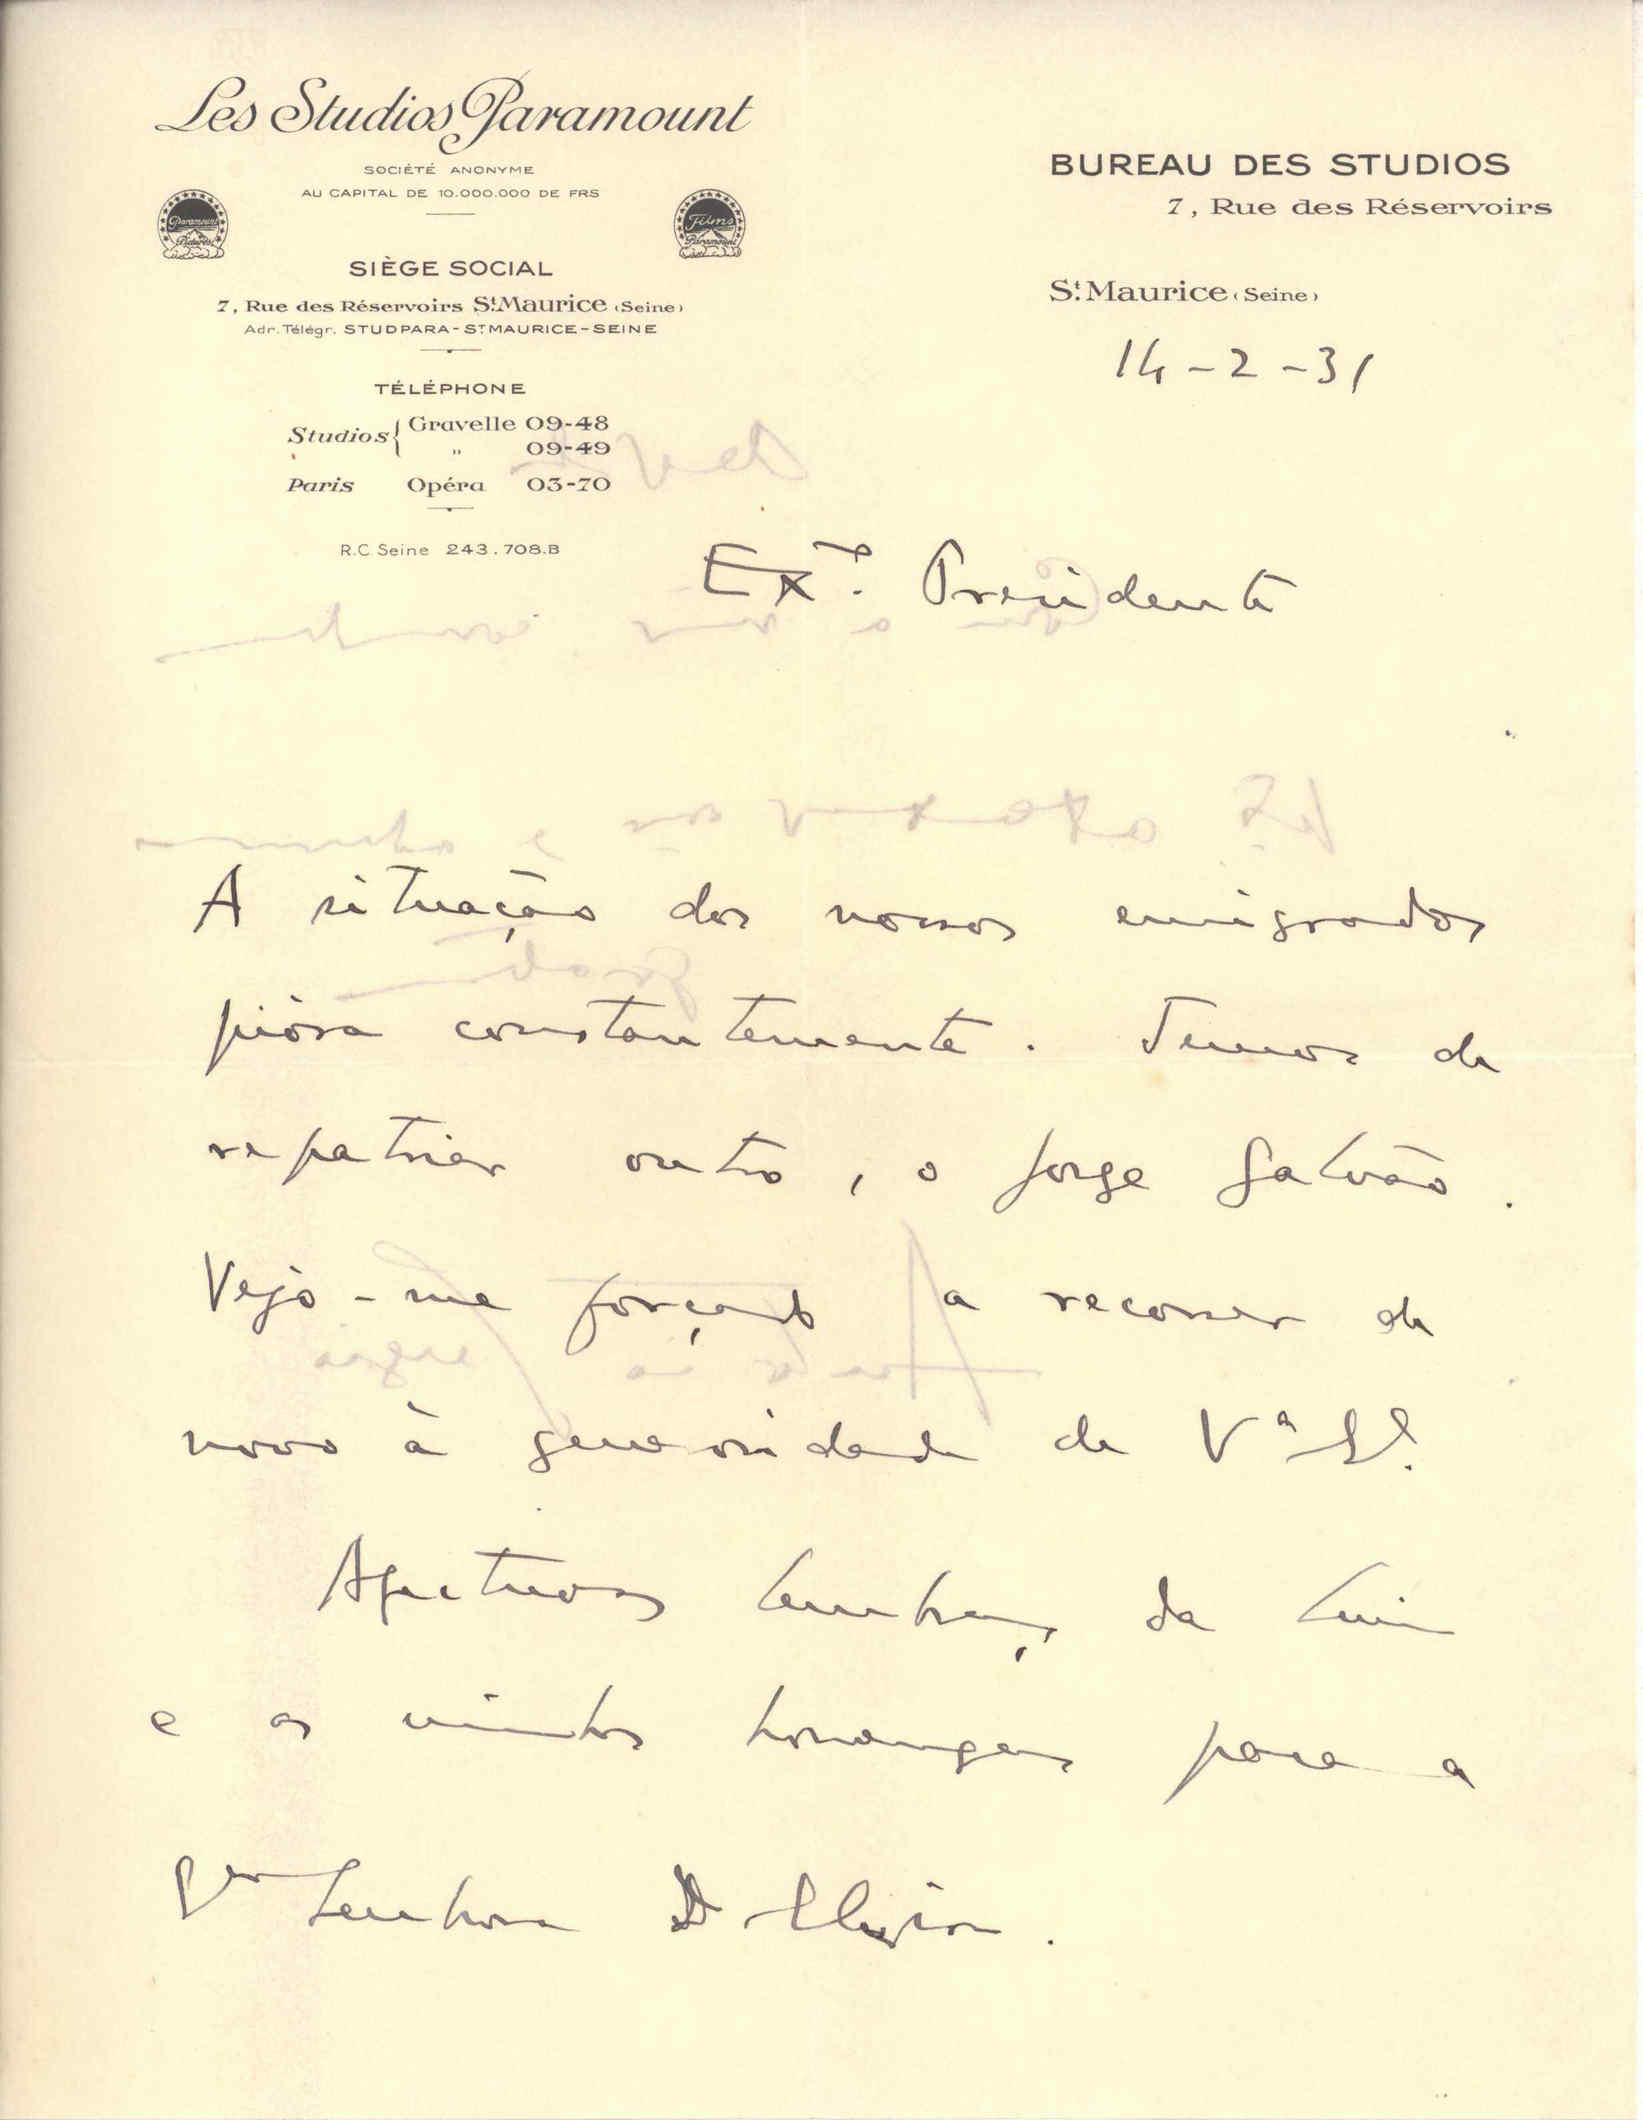 Les Studios Paramount
SOCIÉTÉ ANONYME
AU CAPITAL DE 10.000.000 DE FRS
Paramount Pictures
Films Paramount
SIÈGE SOCIAL
7, Rue des Réservoirs St. Maurice (Seine)
Adr. Télégr. STUDPARA-ST MAURICE-SEINE
TÉLÉPHONE
Studios { Gravelle 09-48
" 09-49
Paris Opéra 03-70
R.C. Seine 243.708.B
BUREAU DES STUDIOS
7, Rue des Réservoirs
St. Maurice (Seine)
14-2-31
Exmo. Presidente
A situação dos nossos emigrados
pióra constantemente. Temos de
repatriar outro, o Jorge Galvão.
Vejo-me forçado a recorrer de
novo à generosidade de Vª
Afectuosas lembranças da
e as minhas homenagens para a
Senhora D. Elzira.